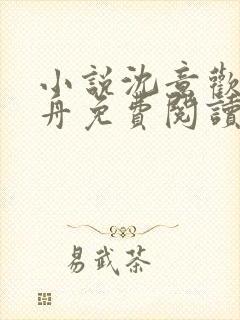 小說沈意歡
丹免費閱讀
易武茶